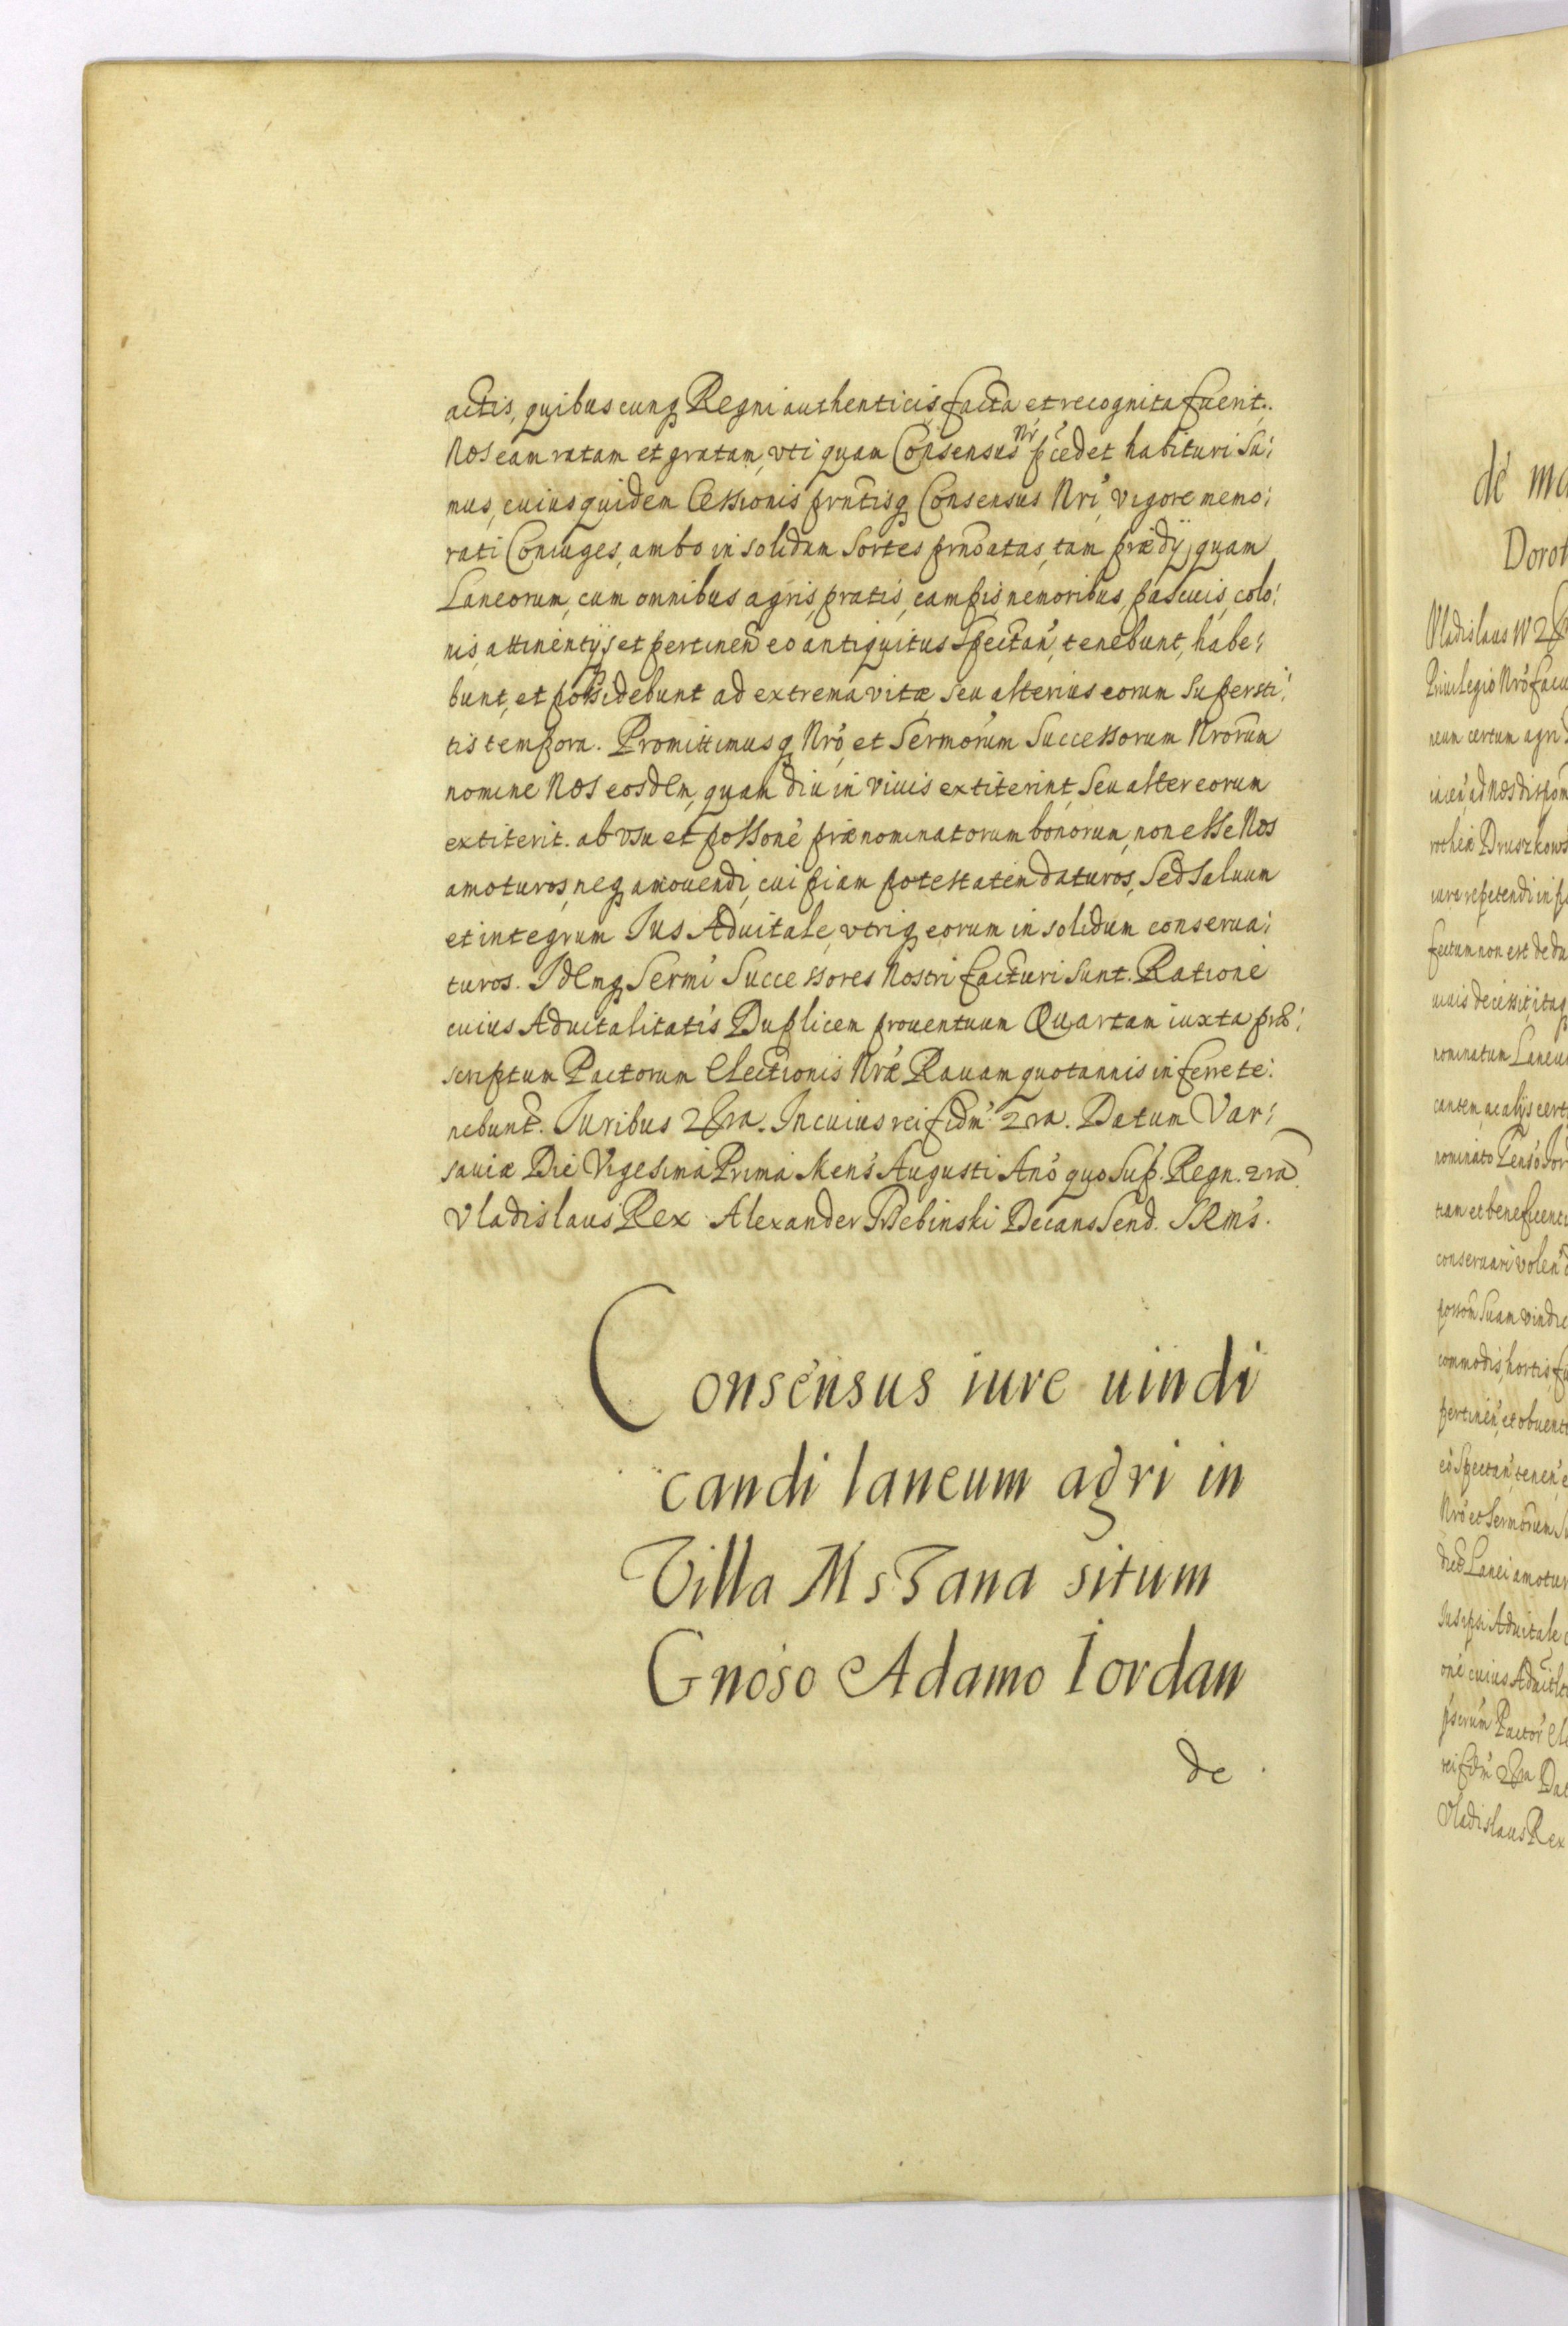 actis, quibuscunq Regni authenticis facta et recognita fuerit.
Nos eam ratam et gratam, vti quam Consensus Nr pcedet habituri Su:
mus, cuius quidem Cessionis prntisq Consensus Nri, vigore memo:
rati Coniuges, ambo in solidum Sortes prnoatas, tam prædij, quam
Laneorum, cum omnibus agris, pratis, campis, nemoribus, pascuis, colo:
nis, attinentijs et pertinen eo antiquitus Spectan, tenebunt, habe:
bunt, et possidebunt ad extrema vitæ seu alterius eorum Supersti:
tis tempora. Promittimusq Nro, et Sermorum Successorum Nrorum
nomine Nos eosdem, quam diu in viuis extiterint, Seu alter eorum
extiterit. ab vsu et possone prænominatorum bonorum, non esse Nos
amoturos, neq amouendi, cuipiam potestatem daturos, Sed Saluum
et integrum Ius Aduitale, vtriq eorum in solidum conserua:
turos. Idemq Sermi Successores Nostri facturi sunt. Ratione
cuius Aduitalitatis Duplicem prouentuum Quartam iuxta præ:
scriptum Pactorum Electionis Nræ Rauam quotannis inferre te:
nebunt. Iuribus 2bra. In cuius rei fidm 2ra. Datum Var:
sauiæ Die Vigesima Prima Mens Augusti Ano quo Sup. Regn. 2ra
Vladislaus Rex Alexander Trzebinski Decans Send. SRMs.
Consensus iure uindi
candi laneum agri in
Villa MsTana situm
Gnoso Adamo Iordan
de
de
Dorot
Vladislaus IV
Priuilegio Nro
neum certum agri
nominatum
conseruari volen
pertinen, et obuent
eo Spectan, tenen,
Nro et Sermorum
Lanei amotur
Ius ipsi Aduitale
Vladislaus Rex